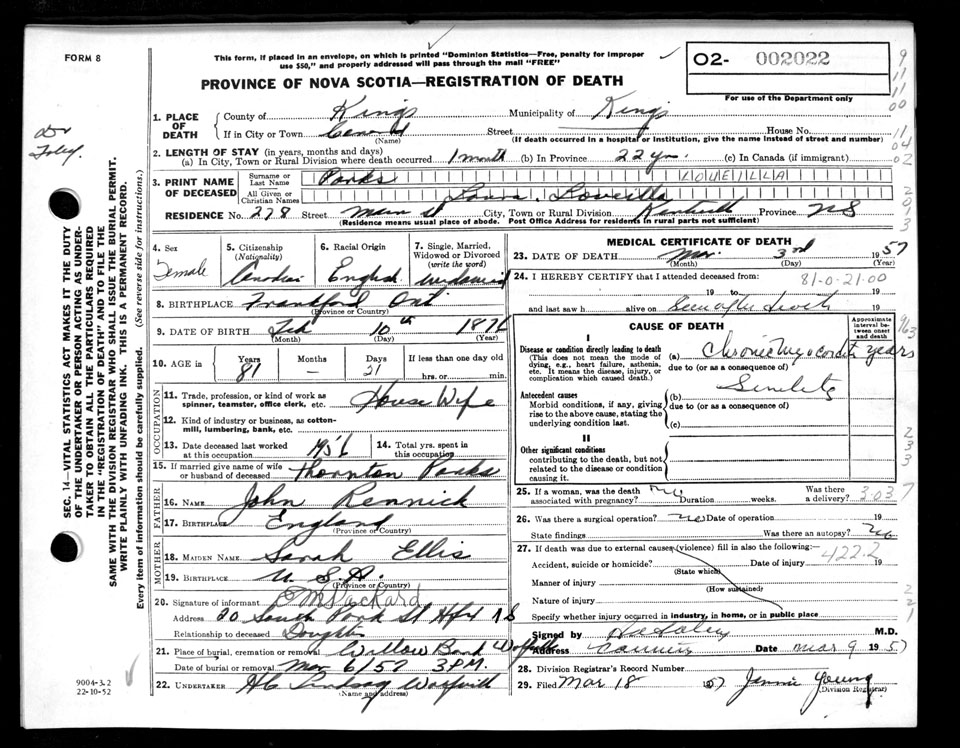 FORM 8
This form, if placed in an envelope, on which is printed "Dominion Statistics—Free, penalty for improper
use $50," and properly addressed will pass through the mail "FREE"
PROVINCE OF NOVA SCOTIA—REGISTRATION OF DEATH
O2- 002022
For use of the Department only
1. PLACE OF DEATH
County of Kings Municipality of Kings
If in City or Town Street House No.
(Name) (If death occurred in a hospital or institution, give the name instead of street and number)
2. LENGTH OF STAY (in years, months and days)
(a) In City, Town or Rural Division where death occurred 1 month (b) In Province 22 yr. (c) In Canada (if immigrant)
3. PRINT NAME OF DECEASED
Surname or Last Name Parks LOUEILLA
All Given or Christian Names Laura
RESIDENCE No. 278 Street Main St City, Town or Rural Division Kentville Province NS
(Residence means usual place of abode. Post Office Address for residents in rural parts not sufficient)
4. Sex Female
5. Citizenship (Nationality) Canadian
6. Racial Origin English
7. Single, Married, Widowed or Divorced (write the word)
8. BIRTHPLACE Frankford Ont
(Province or Country)
9. DATE OF BIRTH Feb 10th 1876
(Month) (Day) (Year)
10. AGE in Years 81 Months — Days 21 If less than one day old hrs. or min.
OCCUPATION
11. Trade, profession, or kind of work as spinner, teamster, office clerk, etc. House Wife
12. Kind of industry or business, as cotton-mill, lumbering, bank, etc.
13. Date deceased last worked at this occupation 1956
14. Total yrs. spent in this occupation
15. If married give name of wife or husband of deceased Thornton Parks
FATHER
16. NAME John Rennick
17. BIRTHPLACE England
(Province or Country)
MOTHER
18. MAIDEN NAME Sarah Ellis
19. BIRTHPLACE U S A.
(Province or Country)
20. Signature of informant Packard
Address 20 South Park St Hfx N S
Relationship to deceased Daughter
21. Place of burial, cremation or removal Willow Bank Wolfville
Date of burial or removal Mar 6/57 3 PM.
22. UNDERTAKER H C Lindsay Wolfville
(Name and address)
MEDICAL CERTIFICATE OF DEATH
23. DATE OF DEATH Mar. 3rd 1957
(Month) (Day) (Year)
24. I HEREBY CERTIFY that I attended deceased from: 81-0-21-00
19 to 19
and last saw h alive on Seen after death 19
CAUSE OF DEATH
Approximate interval between onset and death
I
Disease or condition directly leading to death
(This does not mean the mode of dying, e.g., heart failure, asthenia, etc. It means the disease, injury, or complication which caused death.)
(a) Chronic Myocarditis years
due to (or as a consequence of)
Antecedent causes
Morbid conditions, if any, giving rise to the above cause, stating the underlying condition last.
(b) Senility
due to (or as a consequence of)
(c)
II
Other significant conditions
contributing to the death, but not related to the disease or condition causing it.
25. If a woman, was the death associated with pregnancy? no Duration weeks. Was there a delivery? 3.037
26. Was there a surgical operation? no Date of operation 19
State findings Was there an autopsy? no
27. If death was due to external causes (violence) fill in also the following: 422.2
Accident, suicide or homicide? Date of injury 19
(State which)
Manner of injury
(How sustained)
Nature of injury
Specify whether injury occurred in industry, in home, or in public place
Signed by M.D.
Address Canning Date Mar 9 1957
28. Division Registrar's Record Number
29. Filed Mar 18 1957 Jennie Young
(Division Registrar)
SEC. 14—VITAL STATISTICS ACT MAKES IT THE DUTY
OF THE UNDERTAKER OR PERSON ACTING AS UNDER-
TAKER TO OBTAIN ALL THE PARTICULARS REQUIRED
IN THE "REGISTRATION OF DEATH" AND TO FILE THE
SAME WITH THE DIVISION REGISTRAR WHO SHALL ISSUE THE BURIAL PERMIT.
WRITE PLAINLY WITH UNFADING INK. THIS IS A PERMANENT RECORD.
Every item of information should be carefully supplied. (See reverse side for instructions.)
9004-3.2
22-10-52